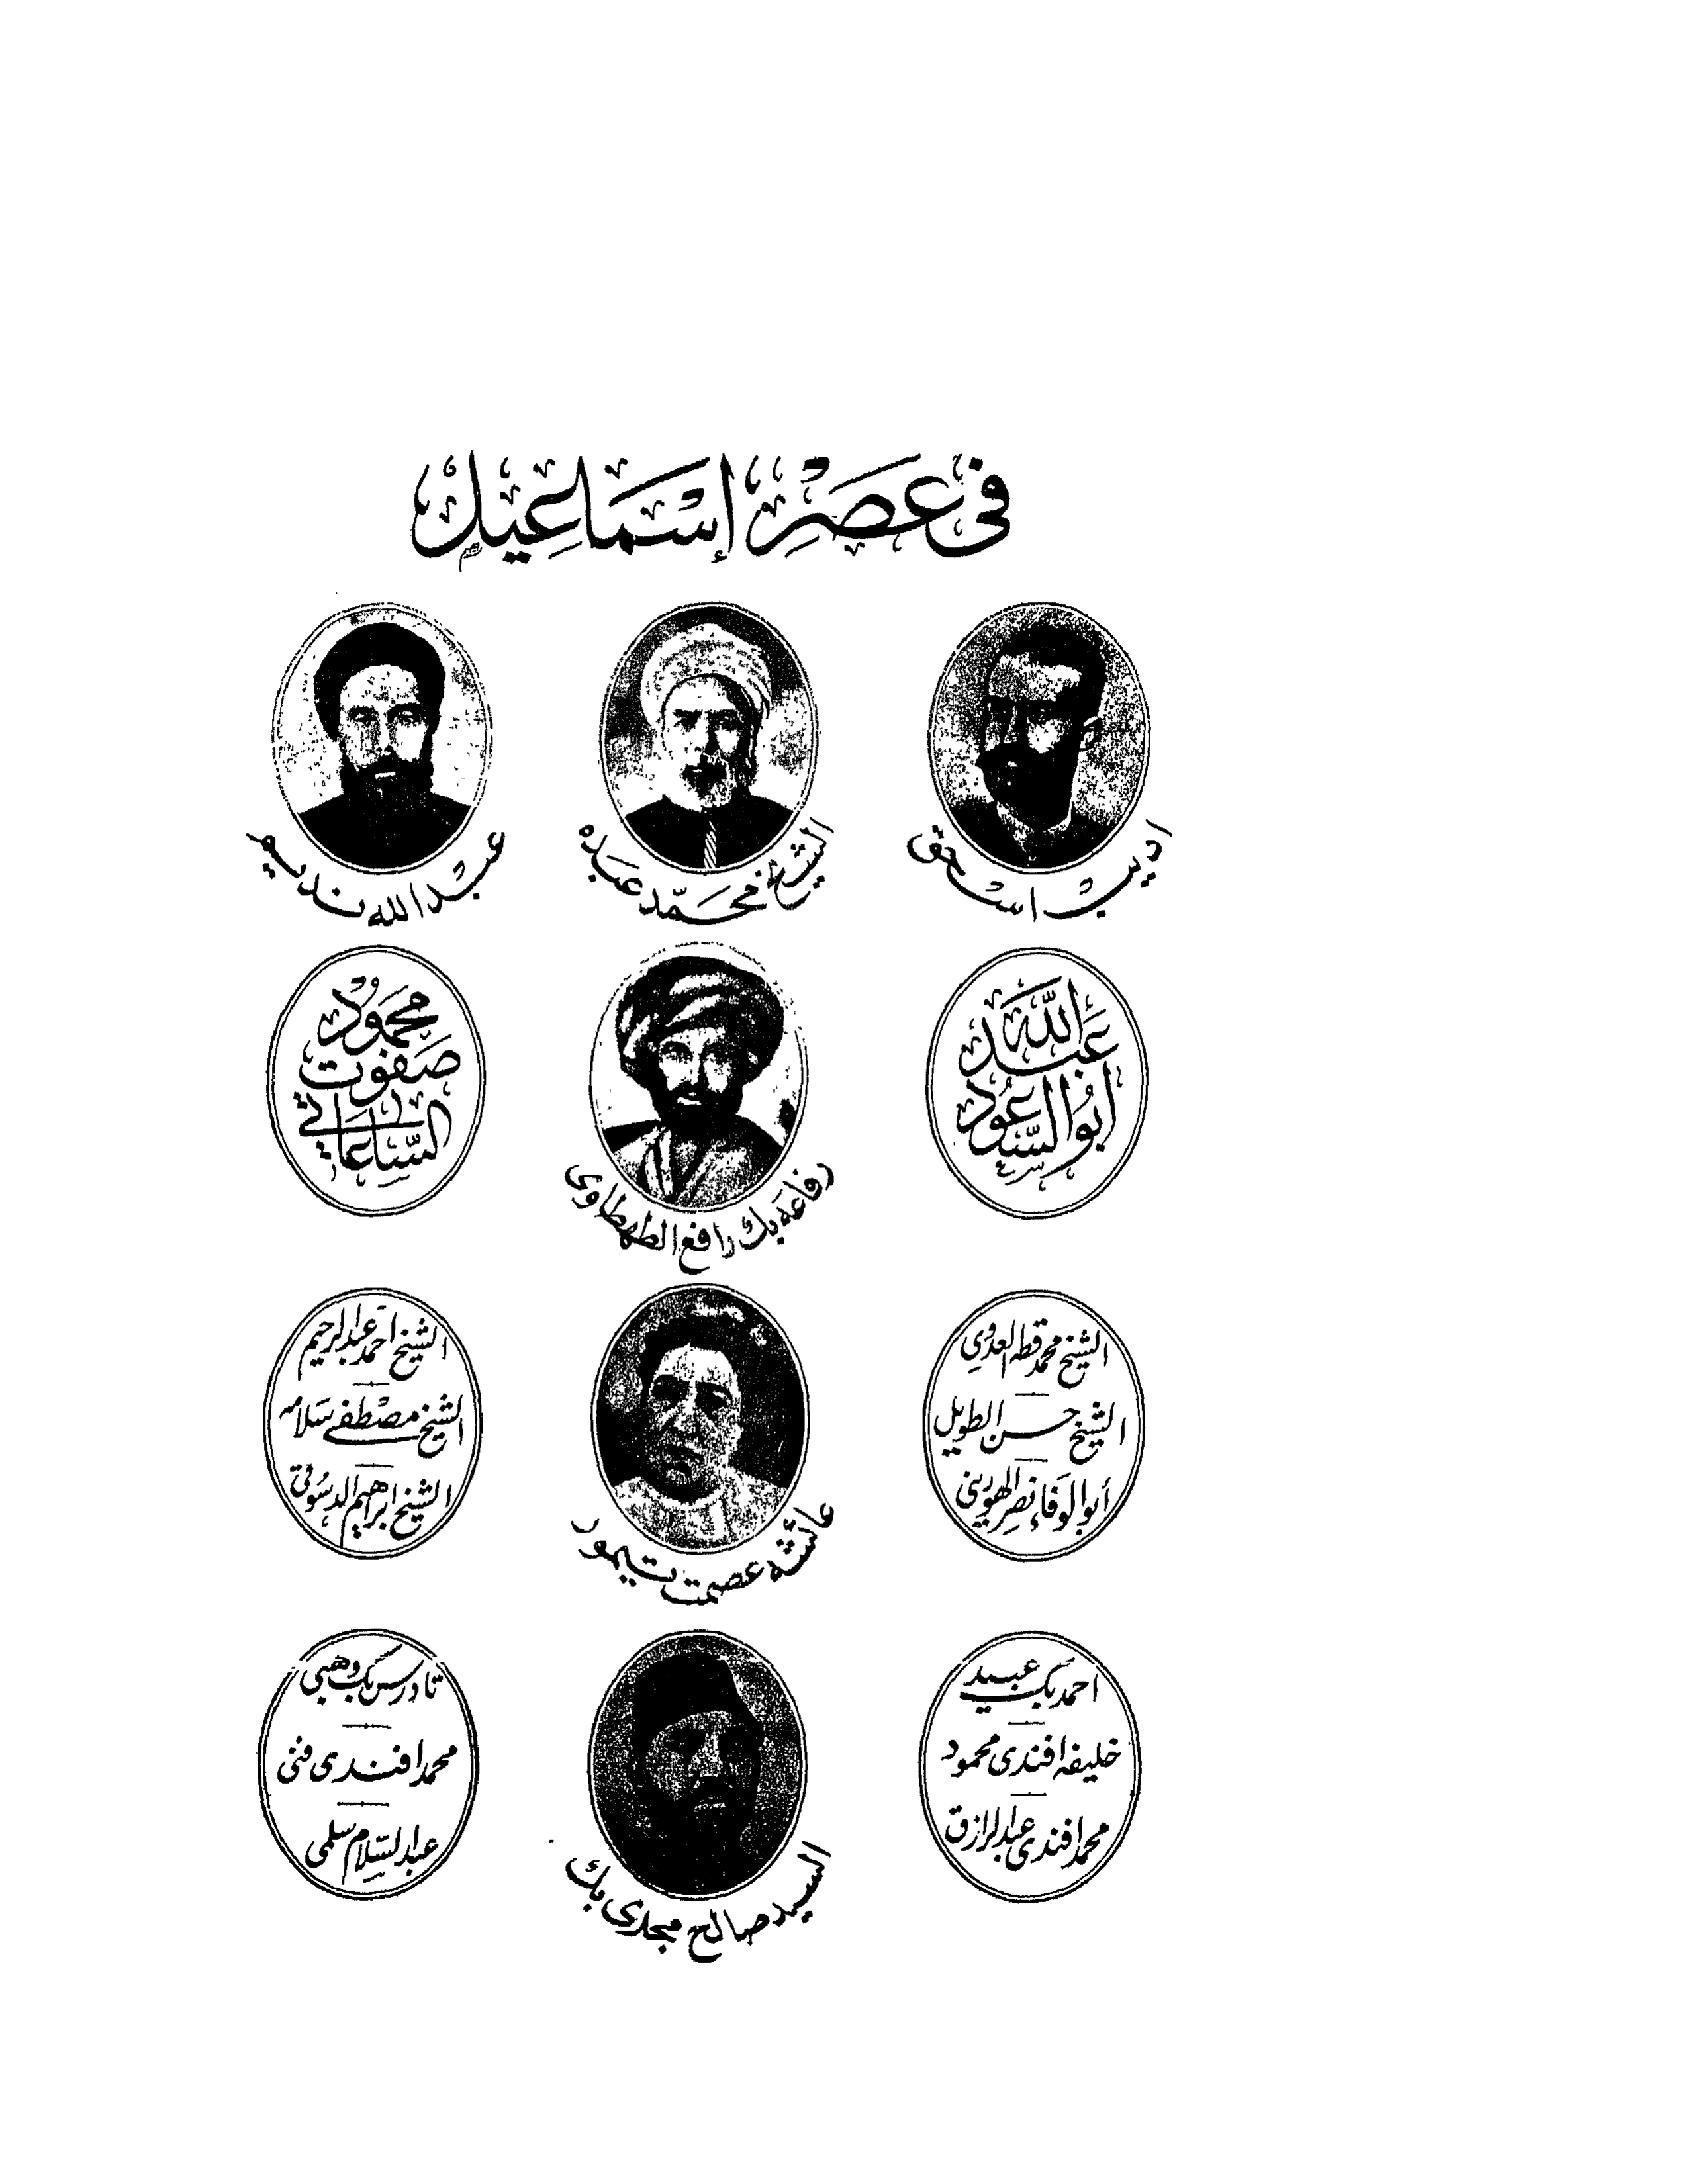 فى عصر إسماعيل
اديب اسحق
الشيخ محمد عبده
عبد الله نديم
عبد الله
ابو السعود
رفاعه بك رافع الطهطاوى
محمود
صفوت
الساعاتي
الشيخ محمد قطه العدوي
الشيخ حسن الطويل
أبو الوفاء نصر الهوريني
عائشه عصمت تيمور
الشيخ احمد عبد الرحيم
الشيخ مصطفى سلامه
الشيخ ابراهيم الدسوقي
احمد بك عبيد
خليفه افندى محمود
محمد افندى عبد الرازق
السيد صالح مجدى بك
تادرس بك وهبي
محمد افندى فني
عبد السلام سلمى